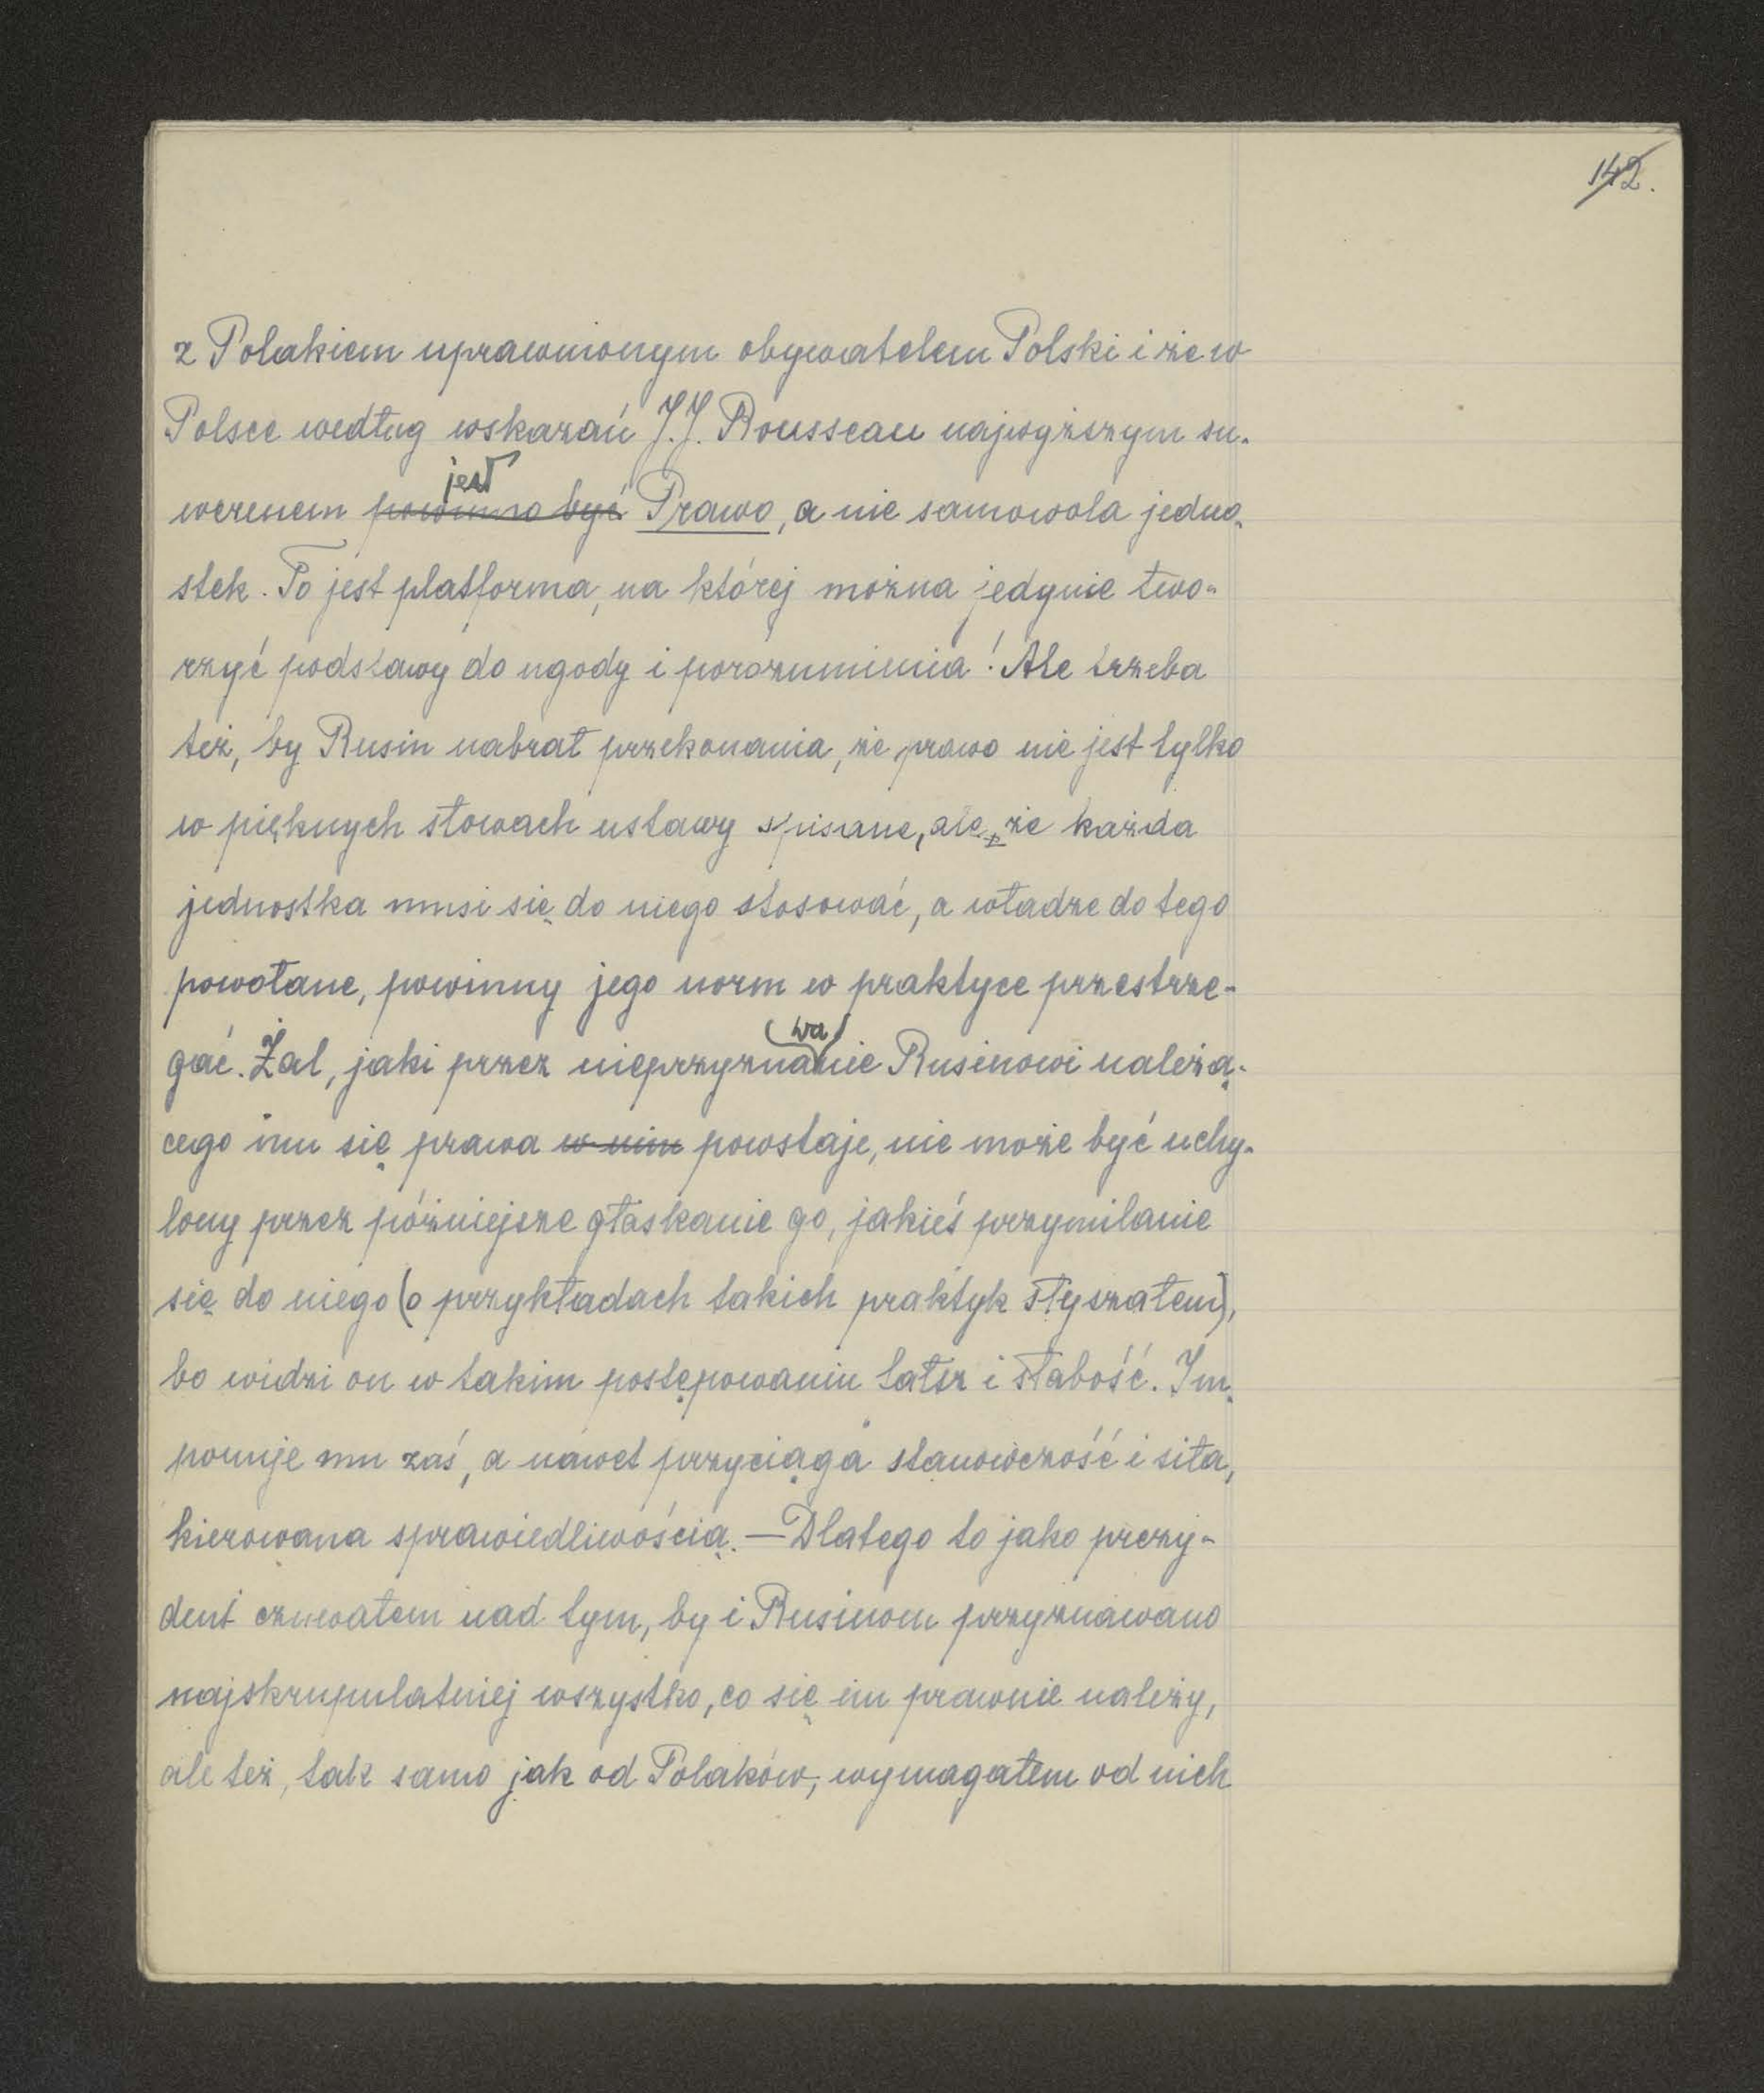 142.
z Polakiem uprawnionym obywatelem Polski i że w
Polsce według wskazań J.J. Rousseau najwyższym su-
jest
werenem powinno być Prawo, a nie samowola jedno-
stek. To jest platforma, na której można jedynie two-
rzyć podstawy do ugody i porozumienia! Ale trzeba
też, by Rusin nabrał przekonania, że prawo nie jest tylko
w pięknych słowach ustawy spisane, ale, że każda
jednostka musi się do niego stosować, a władze do tego
powołane, powinny jego norm w praktyce przestrze-
wa
gać. Żal, jaki przez nieprzyznanie Rusinowi należą-
cego mu się prawa w nim powstaje, nie może być uchy-
lony przez późniejsze głaskanie go, jakieś przymilanie
się do niego (o przykładach takich praktyk słyszałem),
bo widzi on w takim postępowaniu fałsz i słabość. Im-
ponuje mu zaś, a nawet przyciąga stanowczość i siła,
kierowana sprawiedliwością. — Dlatego to jako prezy-
dent czuwałem nad tym, by i Rusinom przyznawano
najskrupulatniej wszystko, co się im prawnie należy,
ale też, tak samo jak od Polaków, wymagałem od nich